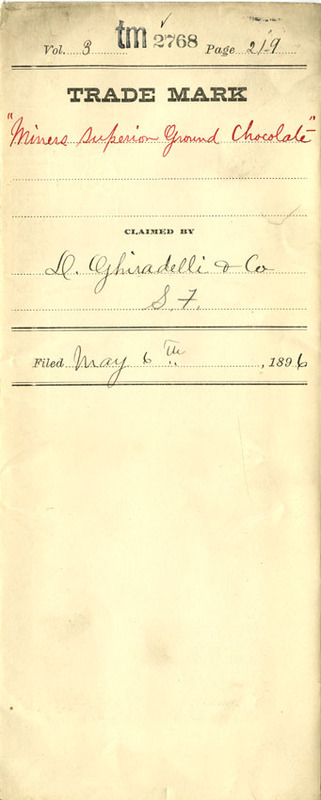 tm 2768
Vol. 3 Page 219
TRADE MARK
"Miners Superior Ground Chocolate"
CLAIMED BY
D. Ghiradelli & Co
S. F.
Filed May 6th, 1896